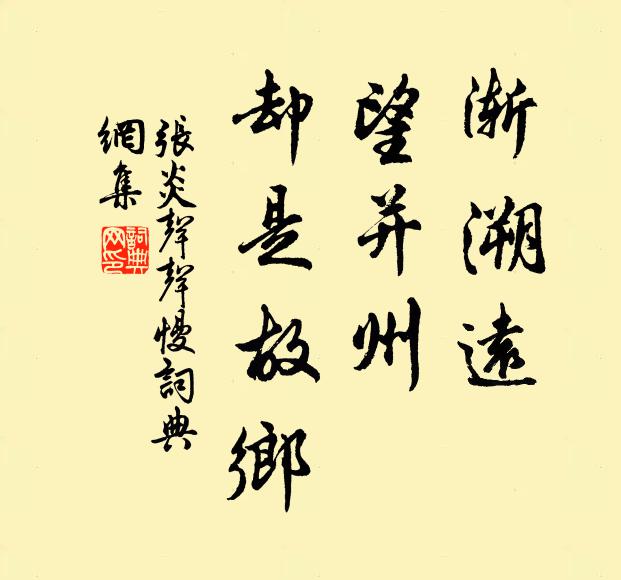 渐溯遠
望并州
却是故鄉
張炎聲聲慢詞典
網集
詞典
网印